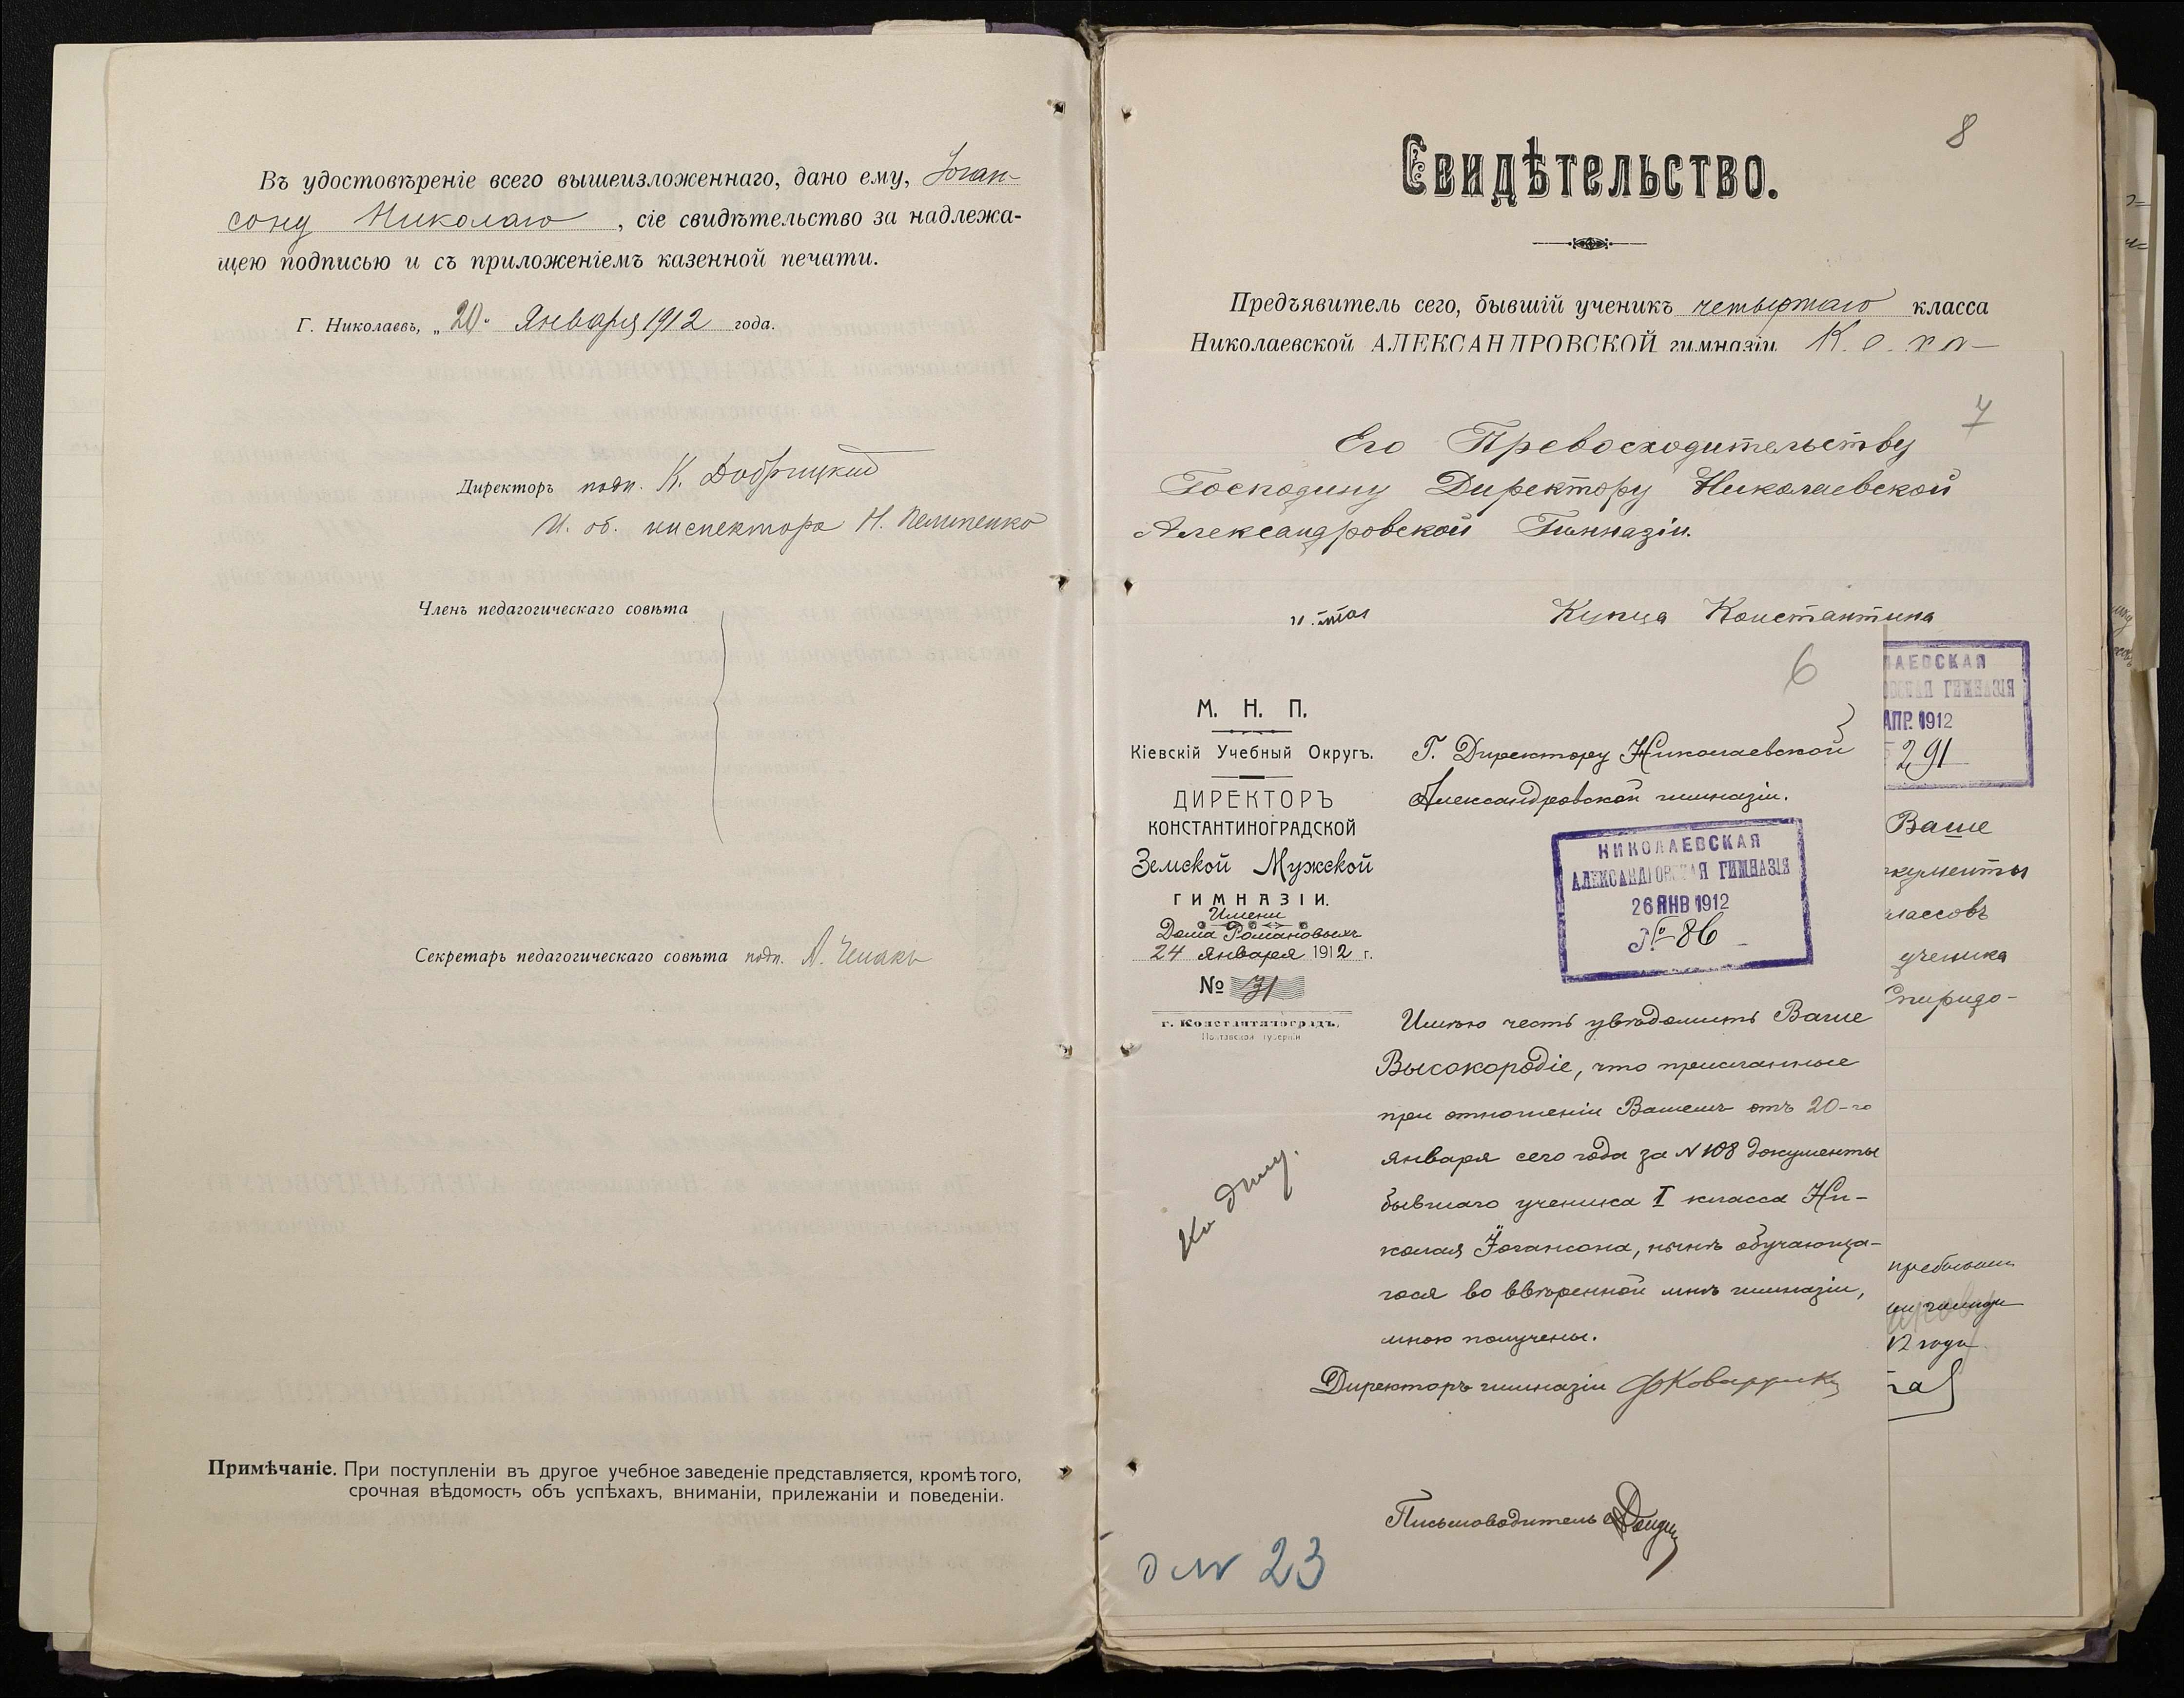 Въ удостовѣреніе всего вышеизложеннаго, дано ему, Іоган-
сону Николаю, сіе свидѣтельство за надлежа-
щею подписью и съ приложеніемъ казенной печати.
Г. Николаевъ, „20“ Января 1912 года.
Директоръ подп. К. Добрицкій
И. об. инспектора Н.
Членъ педагогическаго совѣта
Секретарь педагогическаго совѣта подп. А.
Примѣчаніе. При поступленіи въ другое учебное заведеніе представляется, кромѣ того,
срочная вѣдомость объ успѣхахъ, вниманіи, прилежаніи и поведеніи.
8
Свидѣтельство.
Предъявитель сего, бывшій ученикъ четвертаго класса
Николаевской АЛЕКСАНДРОВСКОЙ гимназіи
7
Его Превосходительству
Господину Директору Николаевской
Александровской Гимназіи.
Купца Константина
6
ЛАЕВСКАЯ
ОВСКАЯ ГИМНАЗІЯ
АПР. 1912
291
Ваше
кументы
лассовъ
ученика
Спиридо-
12 года
М. Н. П.
Кіевскій Учебный Округъ.
ДИРЕКТОРЪ
КОНСТАНТИНОГРАДСКОЙ
Земской Мужской
ГИМНАЗІИ.
Имени
Дома Романовыхъ
24 января 1912 г.
№ 31
г. Константиноградъ,
Полтавской губерніи
Г. Директору Николаевской
Александровской гимназіи.
НИКОЛАЕВСКАЯ
АЛЕКСАНДРОВСКАЯ ГИМНАЗІЯ
26 ЯНВ 1912
№ 86
Имѣю честь увѣдомить Ваше
Высокородіе, что присланные
при отношеніи Вашемъ отъ 20-го
января сего года за № 108 документы
бывшаго ученика I класса Ни-
колая Іогансона, нынѣ обучающа-
гося во ввѣренной мнѣ гимназіи,
мною получены.
Къ дѣлу.
Директоръ гимназіи
Письмоводитель
23